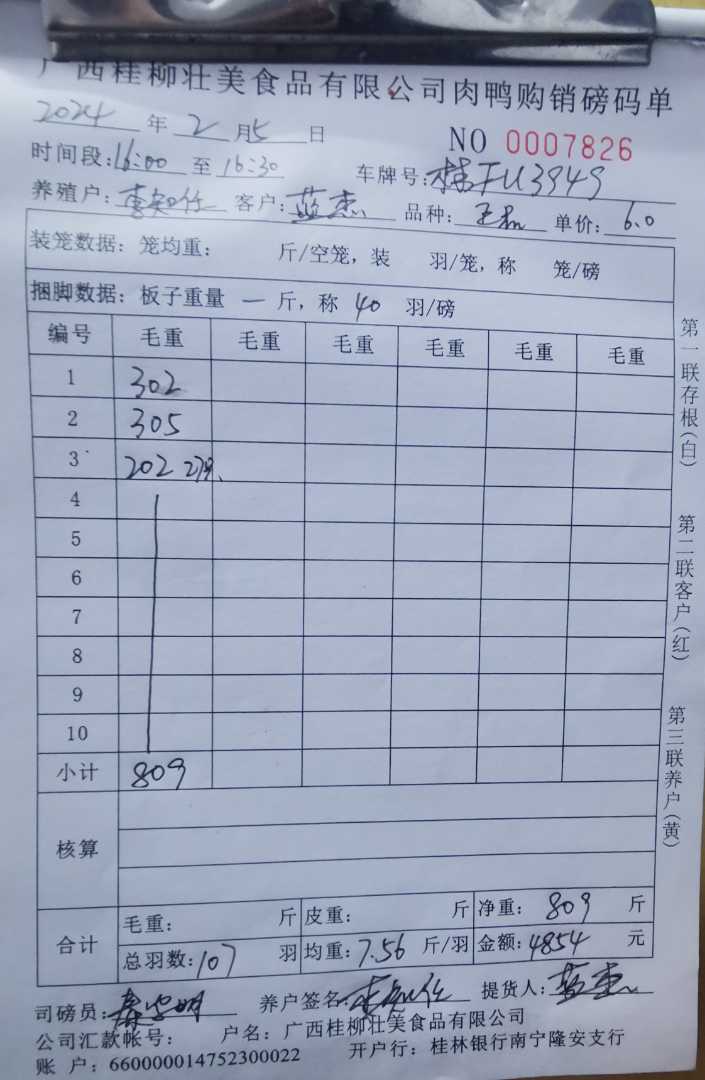 广西桂柳壮美食品有限公司肉鸭购销磅码单
2024 年 2 月 5 日 NO 0007826
时间段: 16:00 至 16:30 车牌号: 桂FU3949
养殖户: 客户: 蓝杰 品种: 单价: 6.0
装笼数据: 笼均重: 斤/空笼, 装 羽/笼, 称 笼/磅
捆脚数据: 板子重量 一 斤, 称 40 羽/磅
编号 毛重 毛重 毛重 毛重 毛重 毛重
1 302
2 305
3 202 27羽
4
5
6
7
8
9
10
小计 809
核算
合计 毛重: 斤 皮重: 斤 净重: 809 斤
总羽数: 107 羽 均重: 7.56 斤/羽 金额: 4854 元
司磅员: 养户签名: 提货人: 蓝杰
公司汇款帐号: 户名: 广西桂柳壮美食品有限公司
账 户: 660000014752300022 开户行: 桂林银行南宁隆安支行
第一联存根(白)
第二联客户(红)
第三联养户(黄)